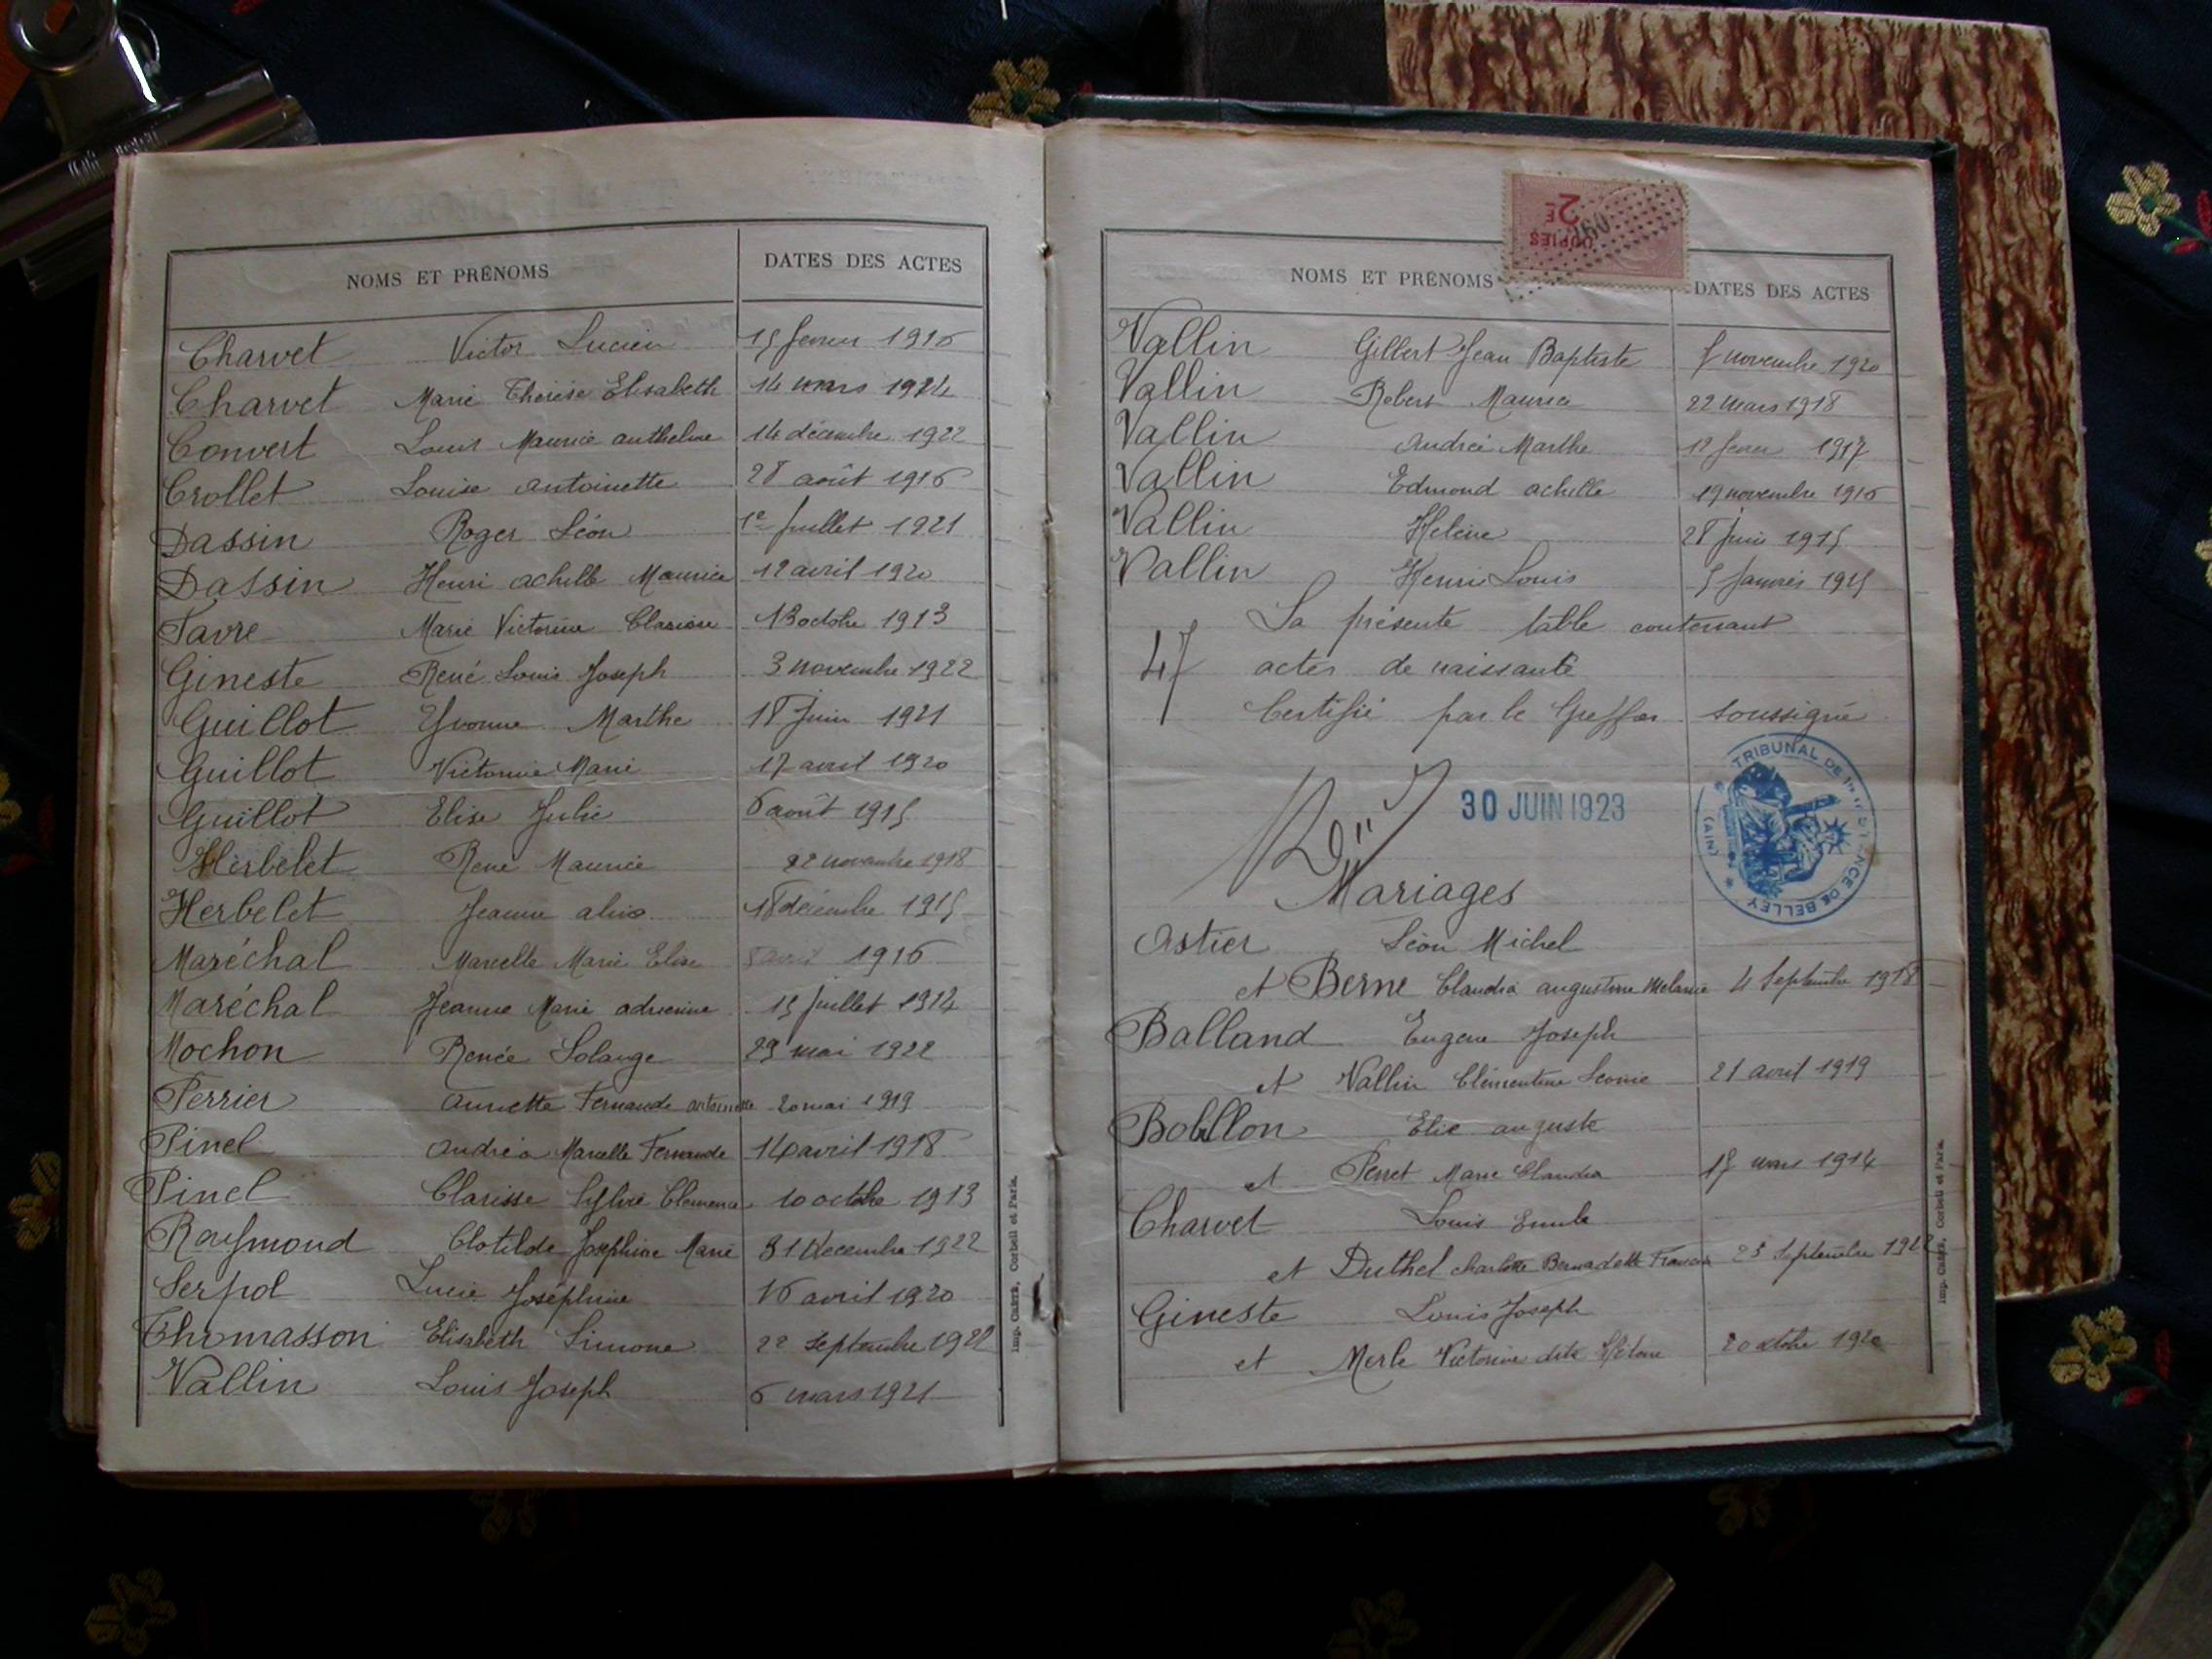 NOMS ET PRÉNOMS DATES DES ACTES
Charvet Victor Lucien 15 fevrier 1916
Charvet Marie Thérèse Elisabeth 14 mars 1914
Convert Louis Maurice anthelme 14 décembre 1922
Crollet Louise antoinette 28 août 1916
Dassin Roger Léon 1e Juillet 1921
Dassin Henri achille Maurice 12 avril 1920
Favre Marie Victorine 13 octobre 1913
Gineste René Louis Joseph 3 novembre 1922
Guillot Yvonne Marthe 18 Juin 1921
Guillot Victorine Marie 17 avril 1920
Guillot Elise Julie 6 août 1915
Herbelet Rene Maurice 22 novembre 1918
Herbelet Jeanne 18 décembre 1915
Maréchal Marcelle Marie Elise avril 1916
Maréchal Jeanne Marie adrienne 15 Juillet 1914
Mochon Renée Solange 29 mai 1922
Perrier Annette Fernande antoinette 20 mai 1919
Pinel Andréa Marcelle Fernande 14 avril 1918
Pinel Clarisse Sylvie Clemence 10 octobre 1913
Raymond Clotilde Josephine Marie 31 decembre 1922
Serpol Lucie Joséphine 16 avril 1920
Thomasson Elisabeth Simone 22 septembre 1921
Vallin Louis Joseph 6 mars 1921
Imp. Corbeil et Paris.
2F
COPIES
NOMS ET PRÉNOMS DATES DES ACTES
Vallin Gilbert Jean Baptiste 5 novembre 1920
Vallin Robert Maurice 22 mars 1918
Vallin Andrée Marthe 12 fevrier 1917
Vallin Edmond achille 19 novembre 1916
Vallin Helène 28 Juin 1915
Vallin Henri Louis 5 Janvier 1915
La présente table contenant
47 actes de naissance
Certifié par le Greffier soussigné
30 JUIN 1923
TRIBUNAL DE 1re INSTANCE DE BELLEY (AIN)
Mariages
Astier Léon Michel
et Berne Claudia augustine Melanie 4 Septembre 1918
Balland Eugene Joseph
et Vallin Clémentine Leonie 21 avril 1919
Bobillon Elie auguste
et Perret Marie Claudia mars 1914
Charvet Louis Emile
et Duthel charlotte Bernadette 23 Septembre
Gineste Louis Joseph
et Merle Victorine dite octobre 1920
Imp. Corbeil et Paris.